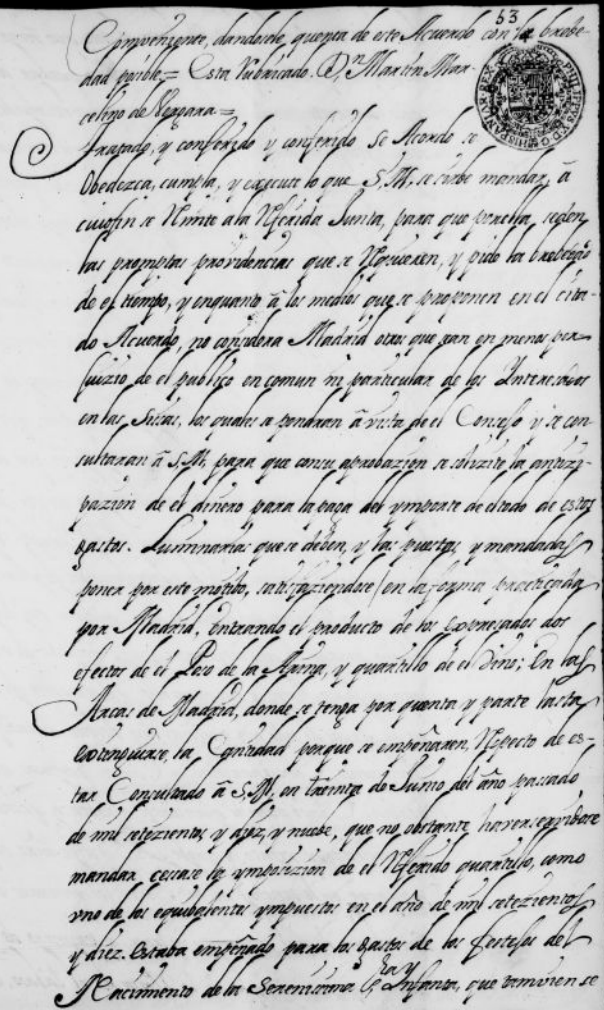 53
Combeniente, dandosele, quenta de este Acuerdo con la brebe-
dad posible = Esta Rubricado. Dn Martin Mar-
celino de Vergara =
tratado, y conferido y conferido se Acordo se
Obedezca, cumpla, y execute lo que S. M. se sirbe mandar, â
cuio fin se Rmite a la Rferida Junta, para que por ella, se den
las promptas providencias que se Rquieren, y pide la brebedad
de el tiempo, y en quanto â los medios que se proponen en el cita-
do Acuerdo, no considera Madrid otros que sean en menos per-
juizio de el publico en comun ni particular de los Ynteresados
en las Sisas, los quales se pondran â vista de el Consejo y se con-
sultaran â S. M. para que con su aprobazion se solizite la antizi-
pazion de el dinero para la paga del ymporte de el todo de estos
gastos. Luminarias que se deben, y las puestas, y mandadas
poner por este motibo, satisfaziendose en la forma practicada
por Madrid, Entrando el producto de los Expresados dos
efectos de el Peso de la Arina, y quartillo de el Vino; En las
Arcas de Madrid, donde se tenga por quenta y parte hasta
extenguirse, la Cantidad porque se empeñaren, Rspecto de es-
tar Consultado â S. M. en treinta de Junio del año passado
de mil setezientos y diez, y nuebe, que no obstante haverse servido de
mandar cessase la ymposizion de el Rferido quartillo, como
vno de los equibalentes ympuestos en el año de mil setezientos
y diez. Estaba empeñado para los gastos de los festejos del
Nacimiento de la Serenissima Sra Ynfanta, que tamvien se